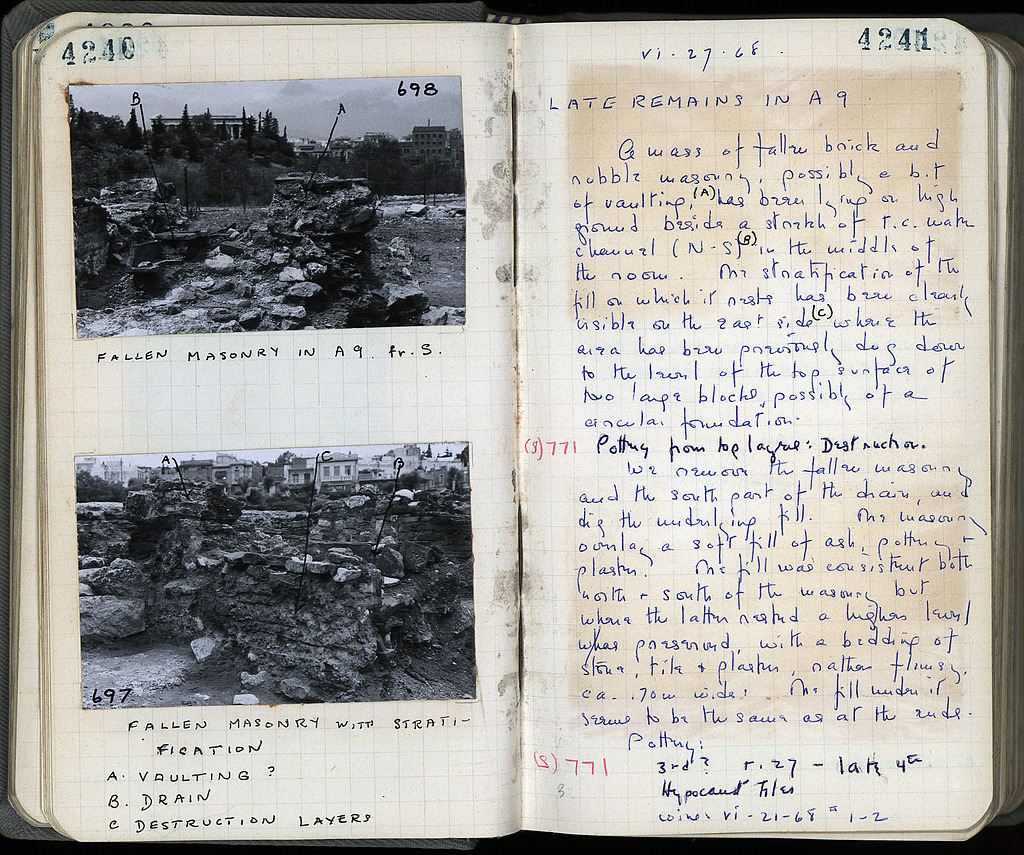 4240
698
B
A
FALLEN MASONRY IN A9. fr. S.
A
C
B
697
FALLEN MASONRY WITH STRATI-
FICATION
A. VAULTING ?
B. DRAIN
C DESTRUCTION LAYERS
4241
vi-27-68.
LATE REMAINS IN A9
A mass of fallen brick and
rubble masonry, possibly a bit
of vaulting, (A) has been lying on high
ground beside a stretch of t.c. water
channel (N-S) (B) in the middle of
the room. The stratification of the
fill on which it rests has been clearly
visible on the east side (C) where the
area has been previously dug down
to the level of the top surface of
two large blocks, possibly of a
circular foundation.
(S) 771 Pottery from top layers: Destruction.
We remove the fallen masonry
and the south part of the drain, and
dig the underlying fill. The masonry
overlay a soft fill of ash, pottery +
plaster. The fill was consistent both
north + south of the masonry but
where the latter rested a higher level
was preserved, with a bedding of
stone, tile + plaster, rather flimsy,
ca. .70m wide. The fill under it
seems to be the same as at the ends.
Pottery:
(S) 771 3rd? r. 27 - late 4th
Hypocaust tiles
coins vi-21-68 # 1-2